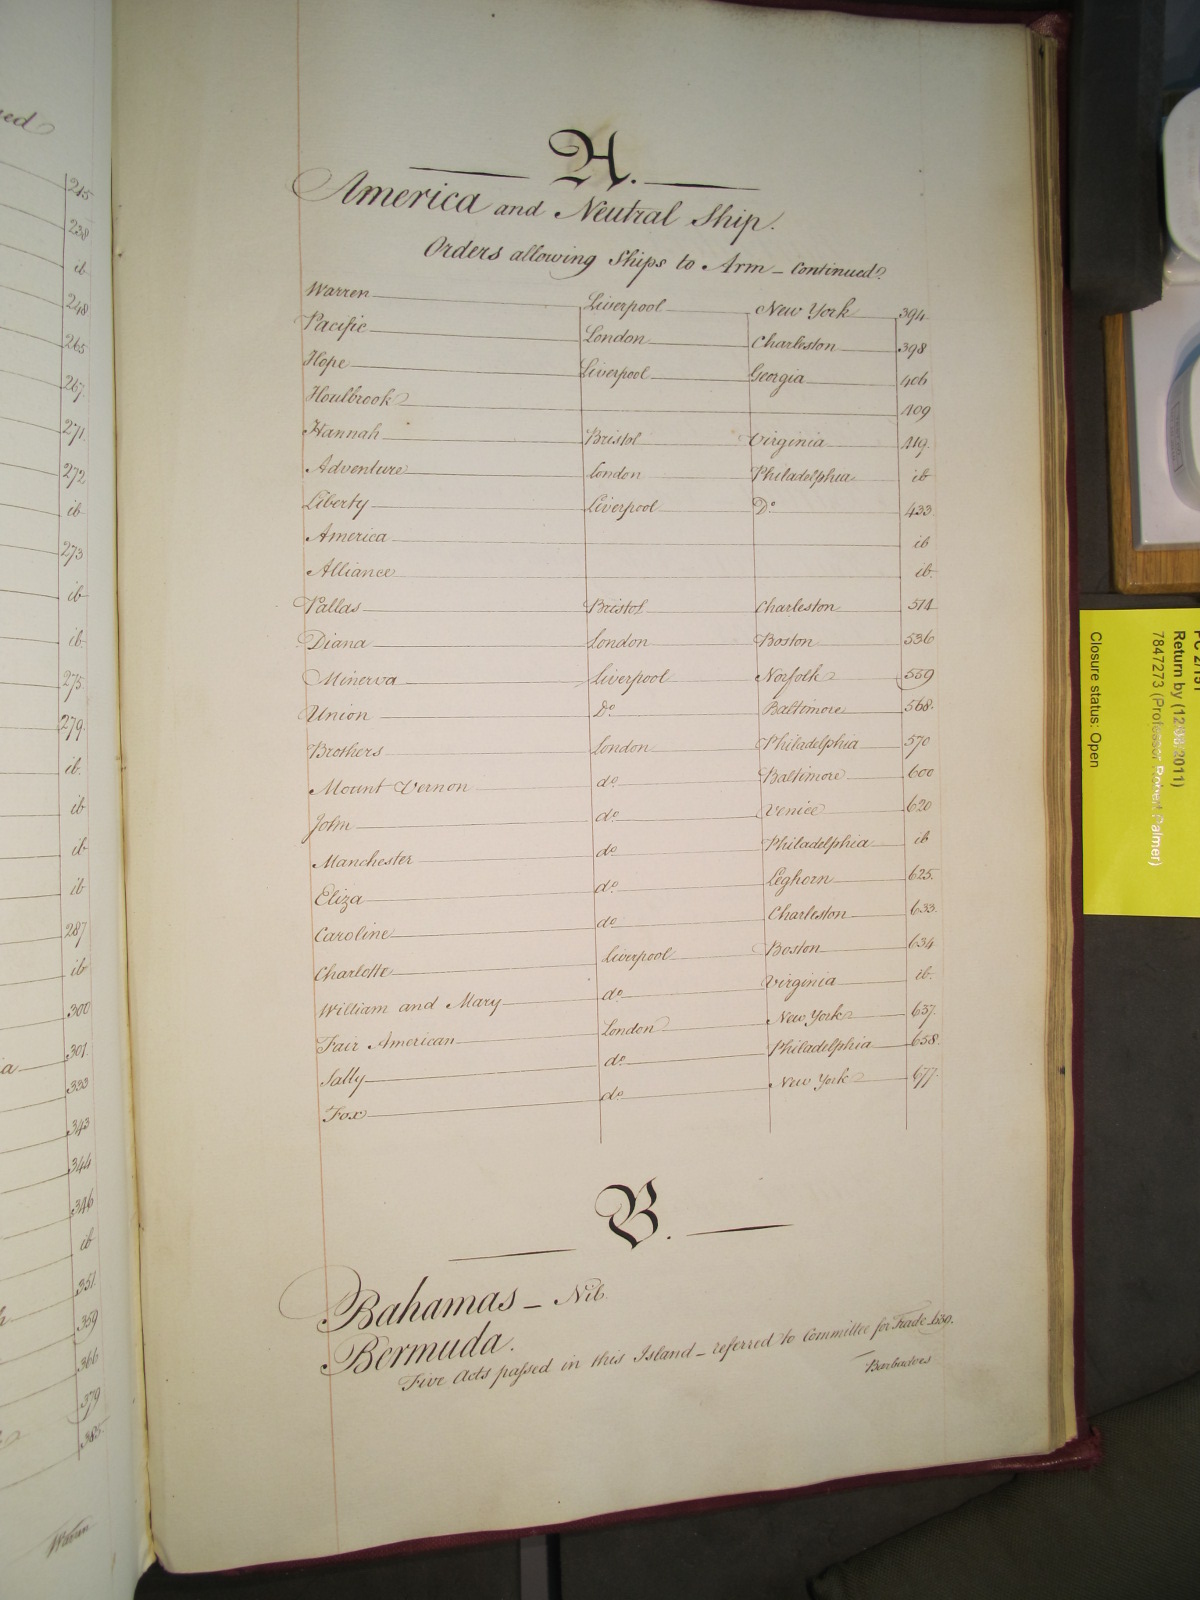 A.
America and Neutral Ship.
Orders allowing Ships to Arm – Continued
Warren Liverpool New York 394
Pacific London Charleston 398
Hope Liverpool Georgia 406
Houlbrook 409
Hannah Bristol Virginia 419
Adventure London Philadelphia ib
Liberty Liverpool Do 433
America ib
Alliance ib.
Pallas Bristol Charleston 514
Diana London Boston 536
Minerva Liverpool Norfolk 559
Union Do Baltimore 568.
Brothers London Philadelphia 570
Mount Vernon do Baltimore 600
John do Venice 620
Manchester do Philadelphia ib
Eliza do Leghorn 625.
Caroline do Charleston 633.
Charlotte Liverpool Boston 634
William and Mary do Virginia ib.
Fair American London New York 637.
Sally do Philadelphia 658.
Fox do New York 677.
B.
Bahamas – Nil.
Bermuda.
Five Acts passed in this Island – referred to Committee for Trade 639.
Barbadoes
245
238
ib
248
265
267.
271.
272
ib
273
ib
ib
275
279.
ib.
ib
ib
ib
287
ib
300
301.
333
343
344
346
ib
351
359
366
379
385.
Warren
Return by (12/08/2011)
7847273 (Professor Robert Palmer)
Closure status: Open